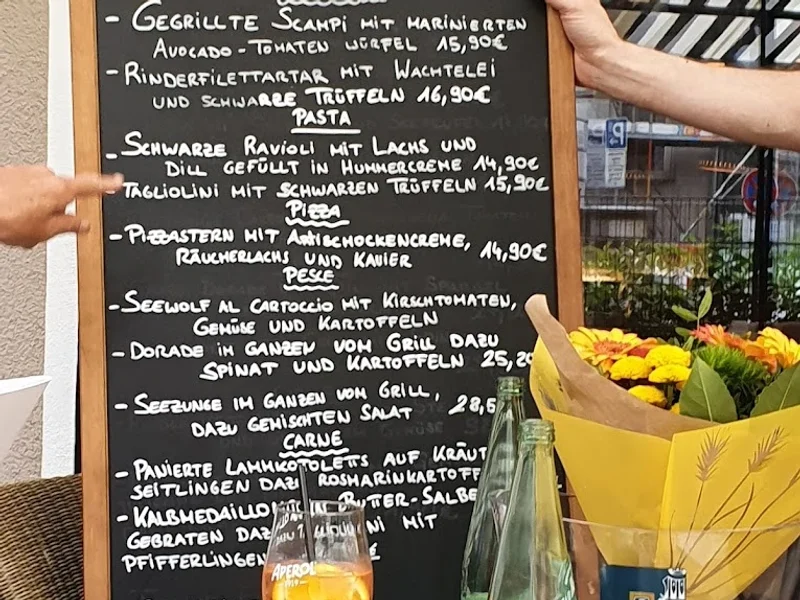 - Gegrillte Scampi mit marinierten
Avocado-Tomaten würfel 15,90€
- Rinderfilettartar mit Wachtelei
und schwarze Trüffeln 16,90€
Pasta
- Schwarze Ravioli mit Lachs und
Dill gefüllt in Hummercreme 14,90€
- Tagliolini mit schwarzen Trüffeln 15,90€
Pizza
- Pizzastern mit Artischockencreme,
Räucherlachs und Kavier 14,90€
Pesce
- Seewolf al cartoccio mit Kirschtomaten,
Gemüse und Kartoffeln
- Dorade im ganzen vom Grill dazu
Spinat und Kartoffeln 25,20
- Seezunge im ganzen vom Grill,
dazu gemischten Salat 28,5
Carne
- Panierte Lammkoteletts auf Kräut
seitlingen dazu Rosmarinkartoff
- Kalbmedaillon Butter-Salbe
gebraten daz ni mit
Pfifferlingen €
Aperol
1919